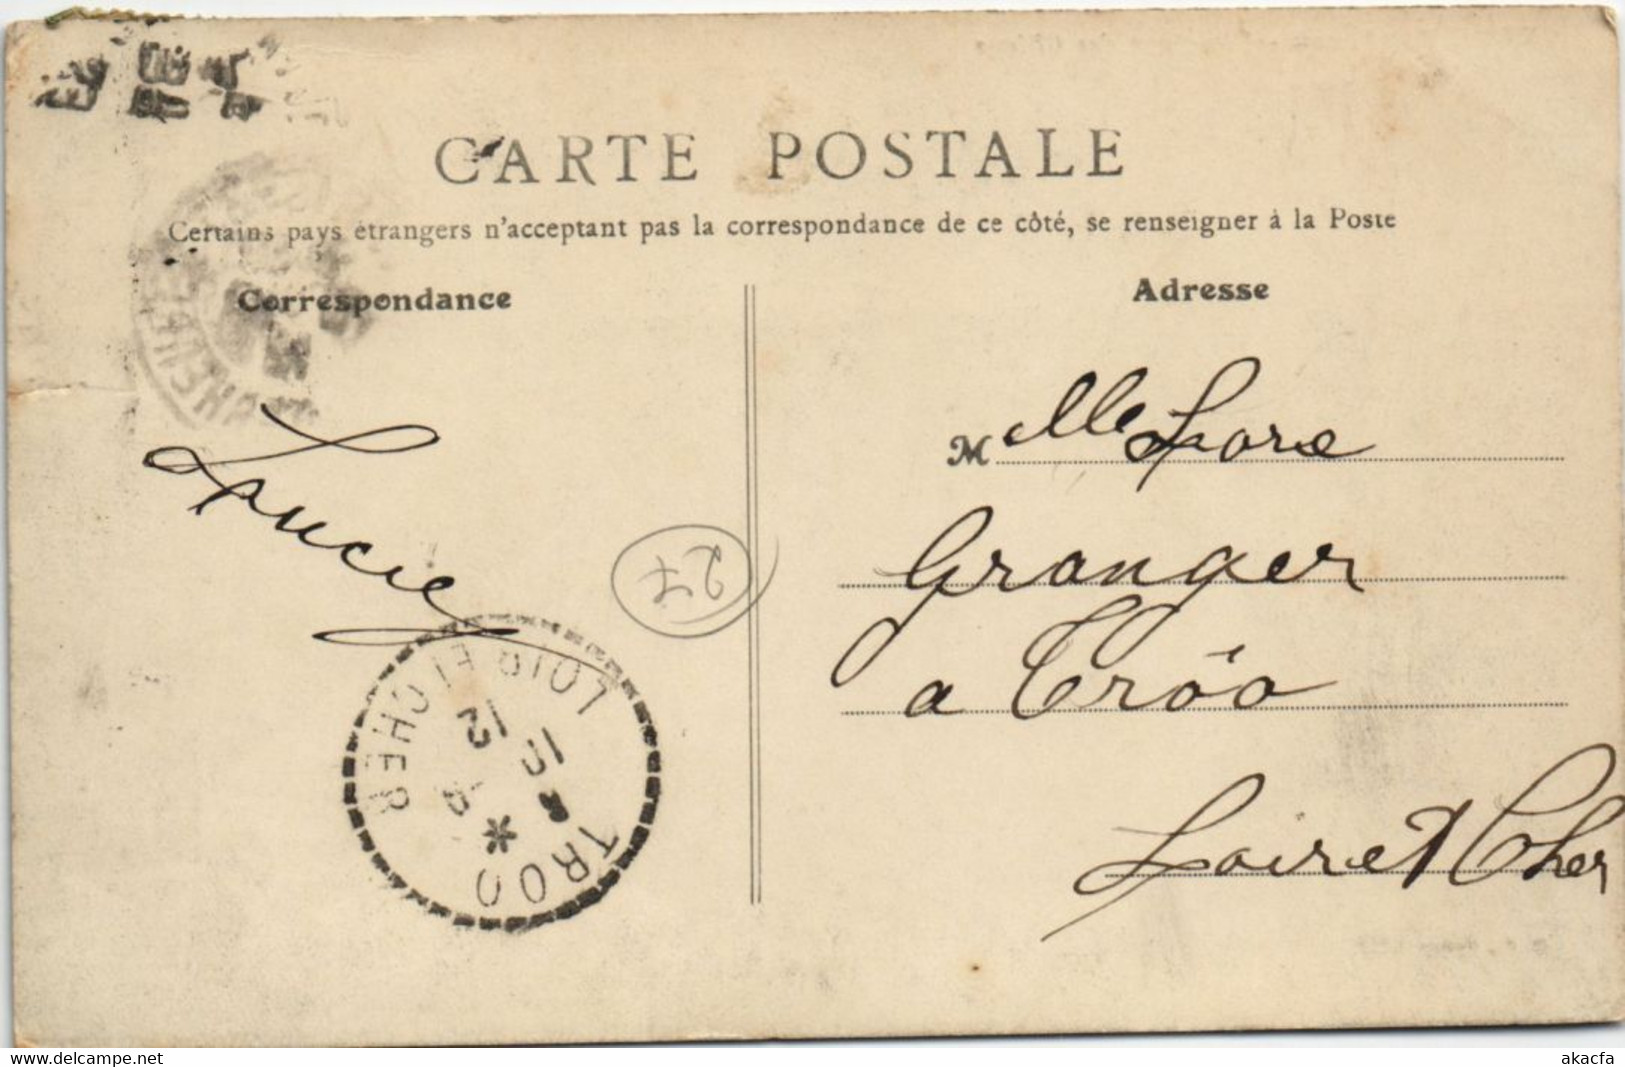 CARTE POSTALE
Certains pays étrangers n'acceptant pas la correspondance de ce côté, se renseigner à la Poste
Correspondance
Adresse
Lucie
M Mlle Lore
Granger
a Trôo
Loir et Cher
27
LOIR ET CHER
TROO
delcampe.net
akacfa